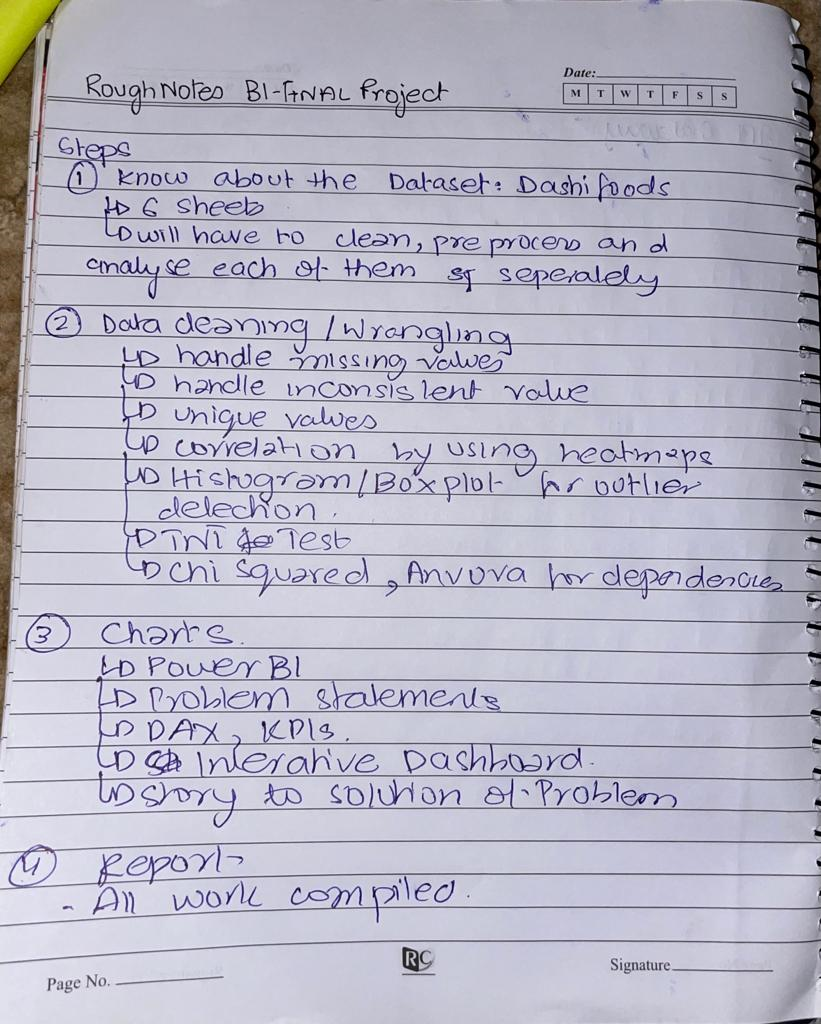 Date:
M T W T F S S
Rough Notes BI-FINAL Project
Steps
① Know about the Dataset: Dashi foods
↳ 6 Sheets
↳ will have to clean, pre process and
analyse each of them seperately
② Data cleaning / Wrangling
↳ handle missing values
↳ handle inconsistent value
↳ unique values
↳ correlation by using heatmaps
↳ Histogram / Box plot for outlier
detection.
↳ Test
↳ Chi squared, Anvova for dependencies
③ Charts.
↳ Power BI
↳ Problem statements
↳ DAX, KPIs.
↳ Interative Dashboard.
↳ story to solution of Problem
④ Report
- All work compiled.
RC
Page No.
Signature